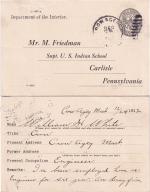 Department of the Interior.
Mr. M. Friedman
Supt. U. S. Indian School
Carlisle
Pennsylvania
Crow Agcy Mont
Name William H. White
Tribe Crow
Present Address Crow Agcy Mont
Former Address
Present Occupation Engineer
Remarks: I've been employed here as
Engineer for